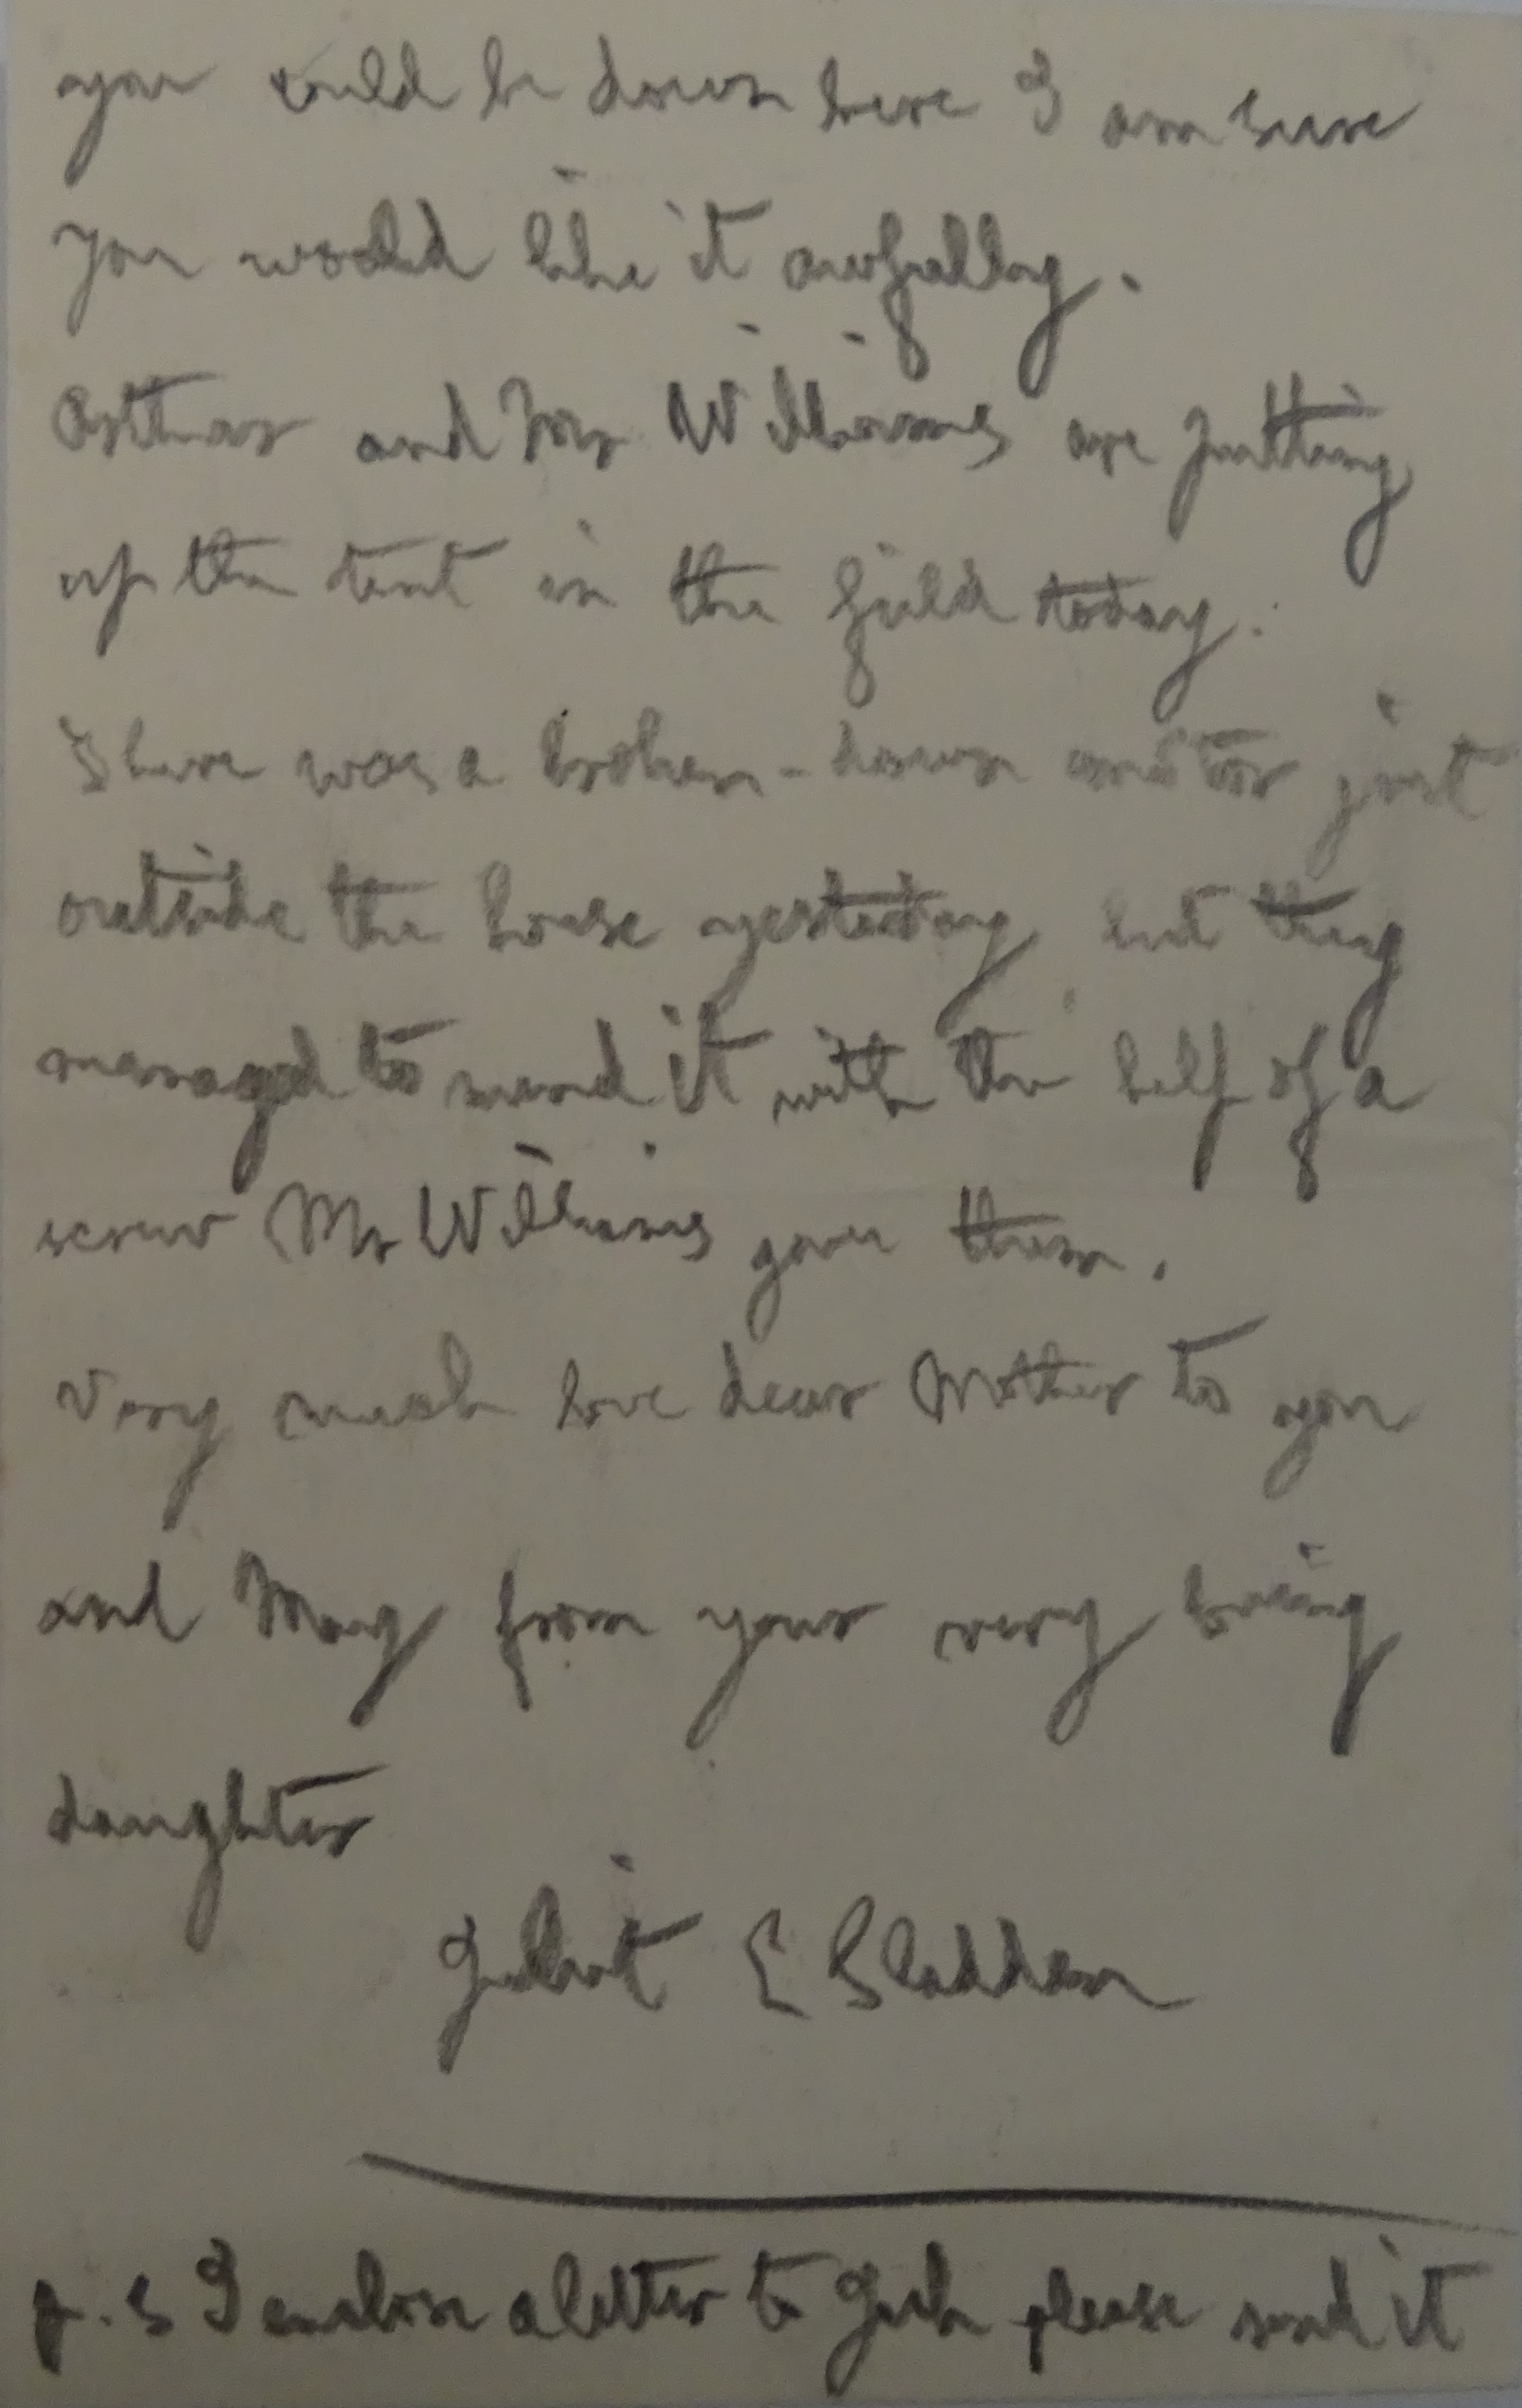 you could be down here I am sure
you would like it awfully.
Arthur and Mr Williams are putting
up the tent in the field today.
There was a broken-down motor just
outside the house yesterday, but they
managed to mend it with the help of a
screw Mr Williams gave them.
Very much love dear Mother to you
and May from your very loving
daughter
Juliet E Sladden
P.S I enclose a letter to Jack please send it